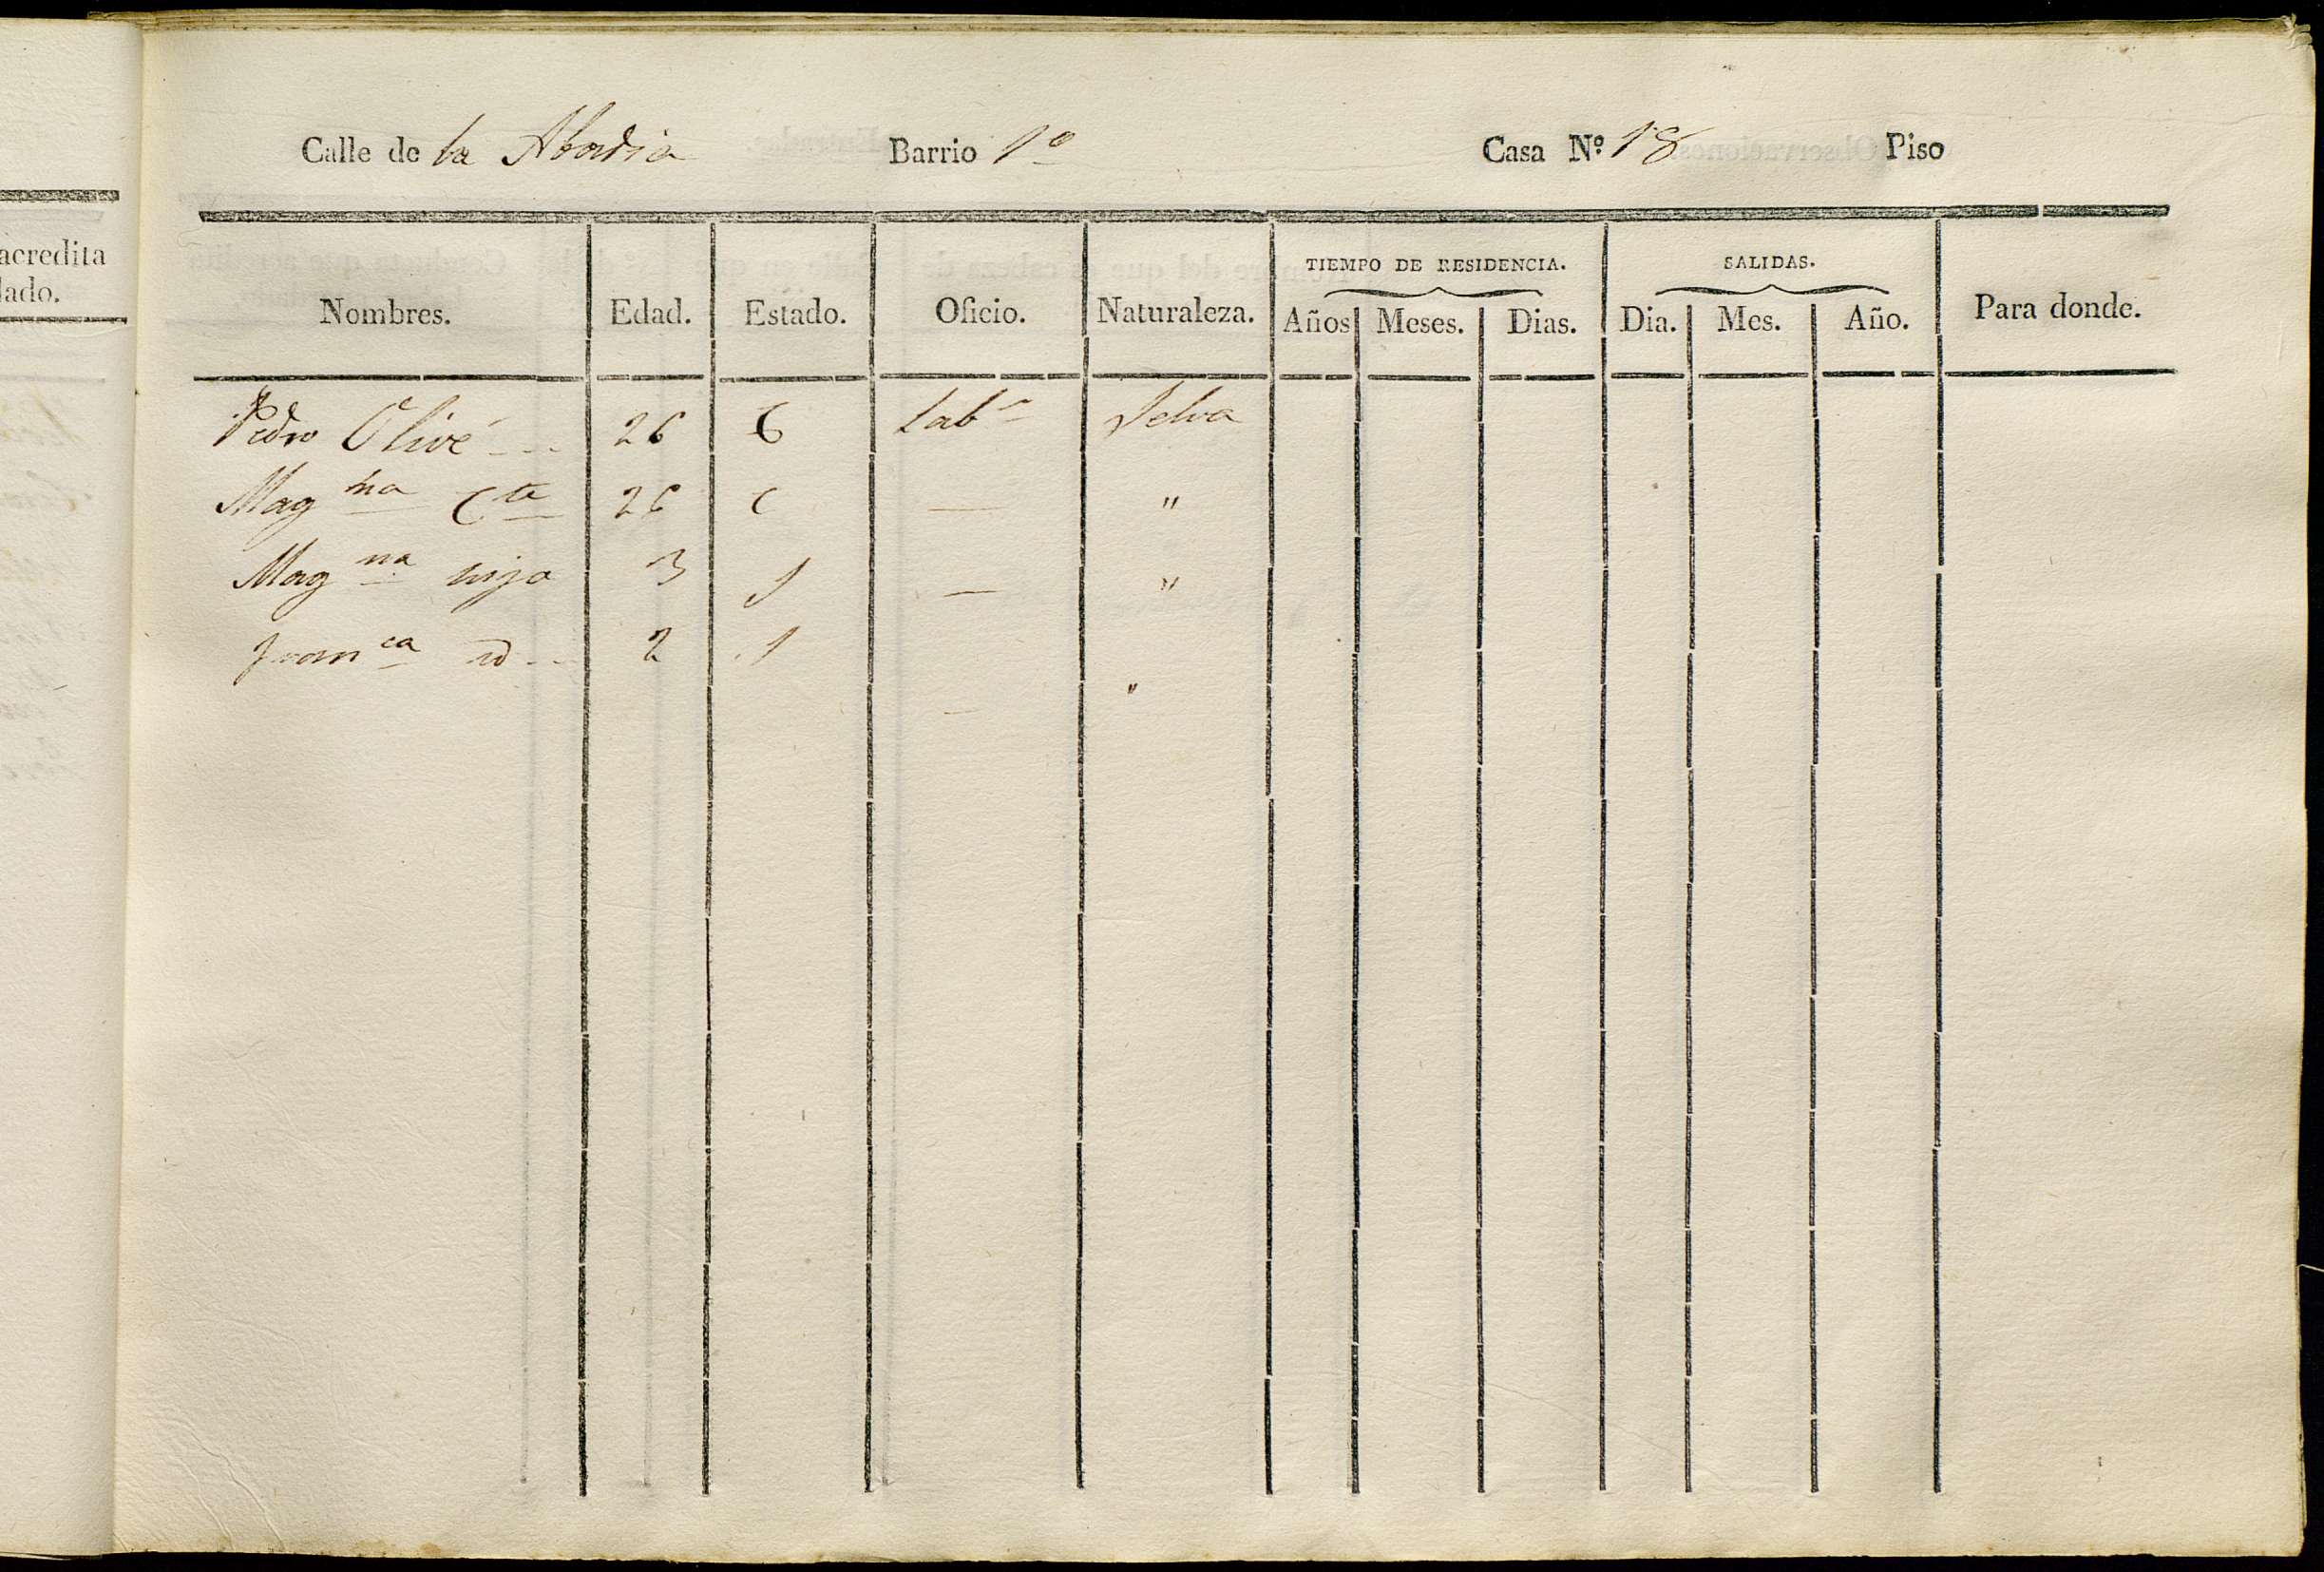 acredita
lado.
Calle de la Abadia Barrio 1º Casa Nº 18 Piso
Nombres. Edad. Estado. Oficio. Naturaleza. TIEMPO DE RESIDENCIA. Años Meses. Dias. SALIDAS. Dia. Mes. Año. Para donde.
Pedro Olivé 26 C Labr Selva
Magna Cta 26 C — "
Magna hija 3 S — "
Franca id 2 S — "